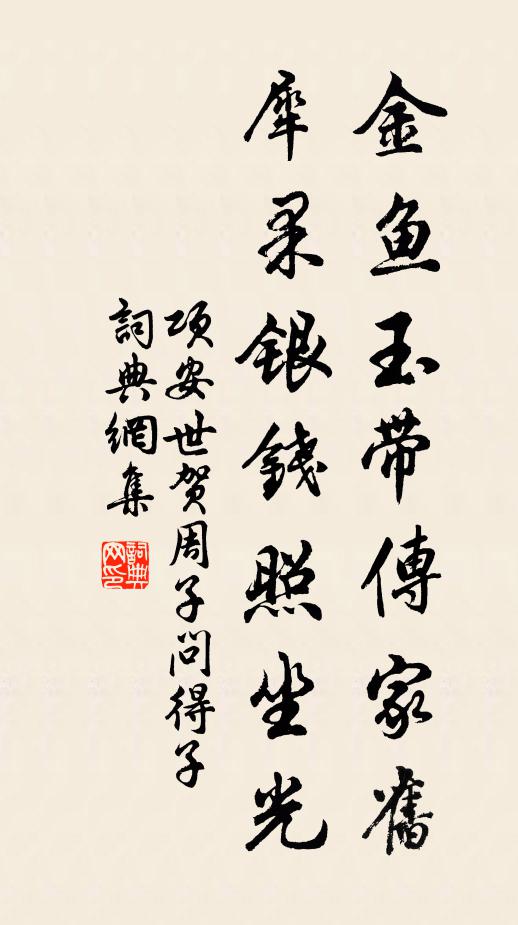 金鱼玉带傳家舊
犀果銀錢照坐光
项安世贺周子问得子
詞典網集
詞典网印